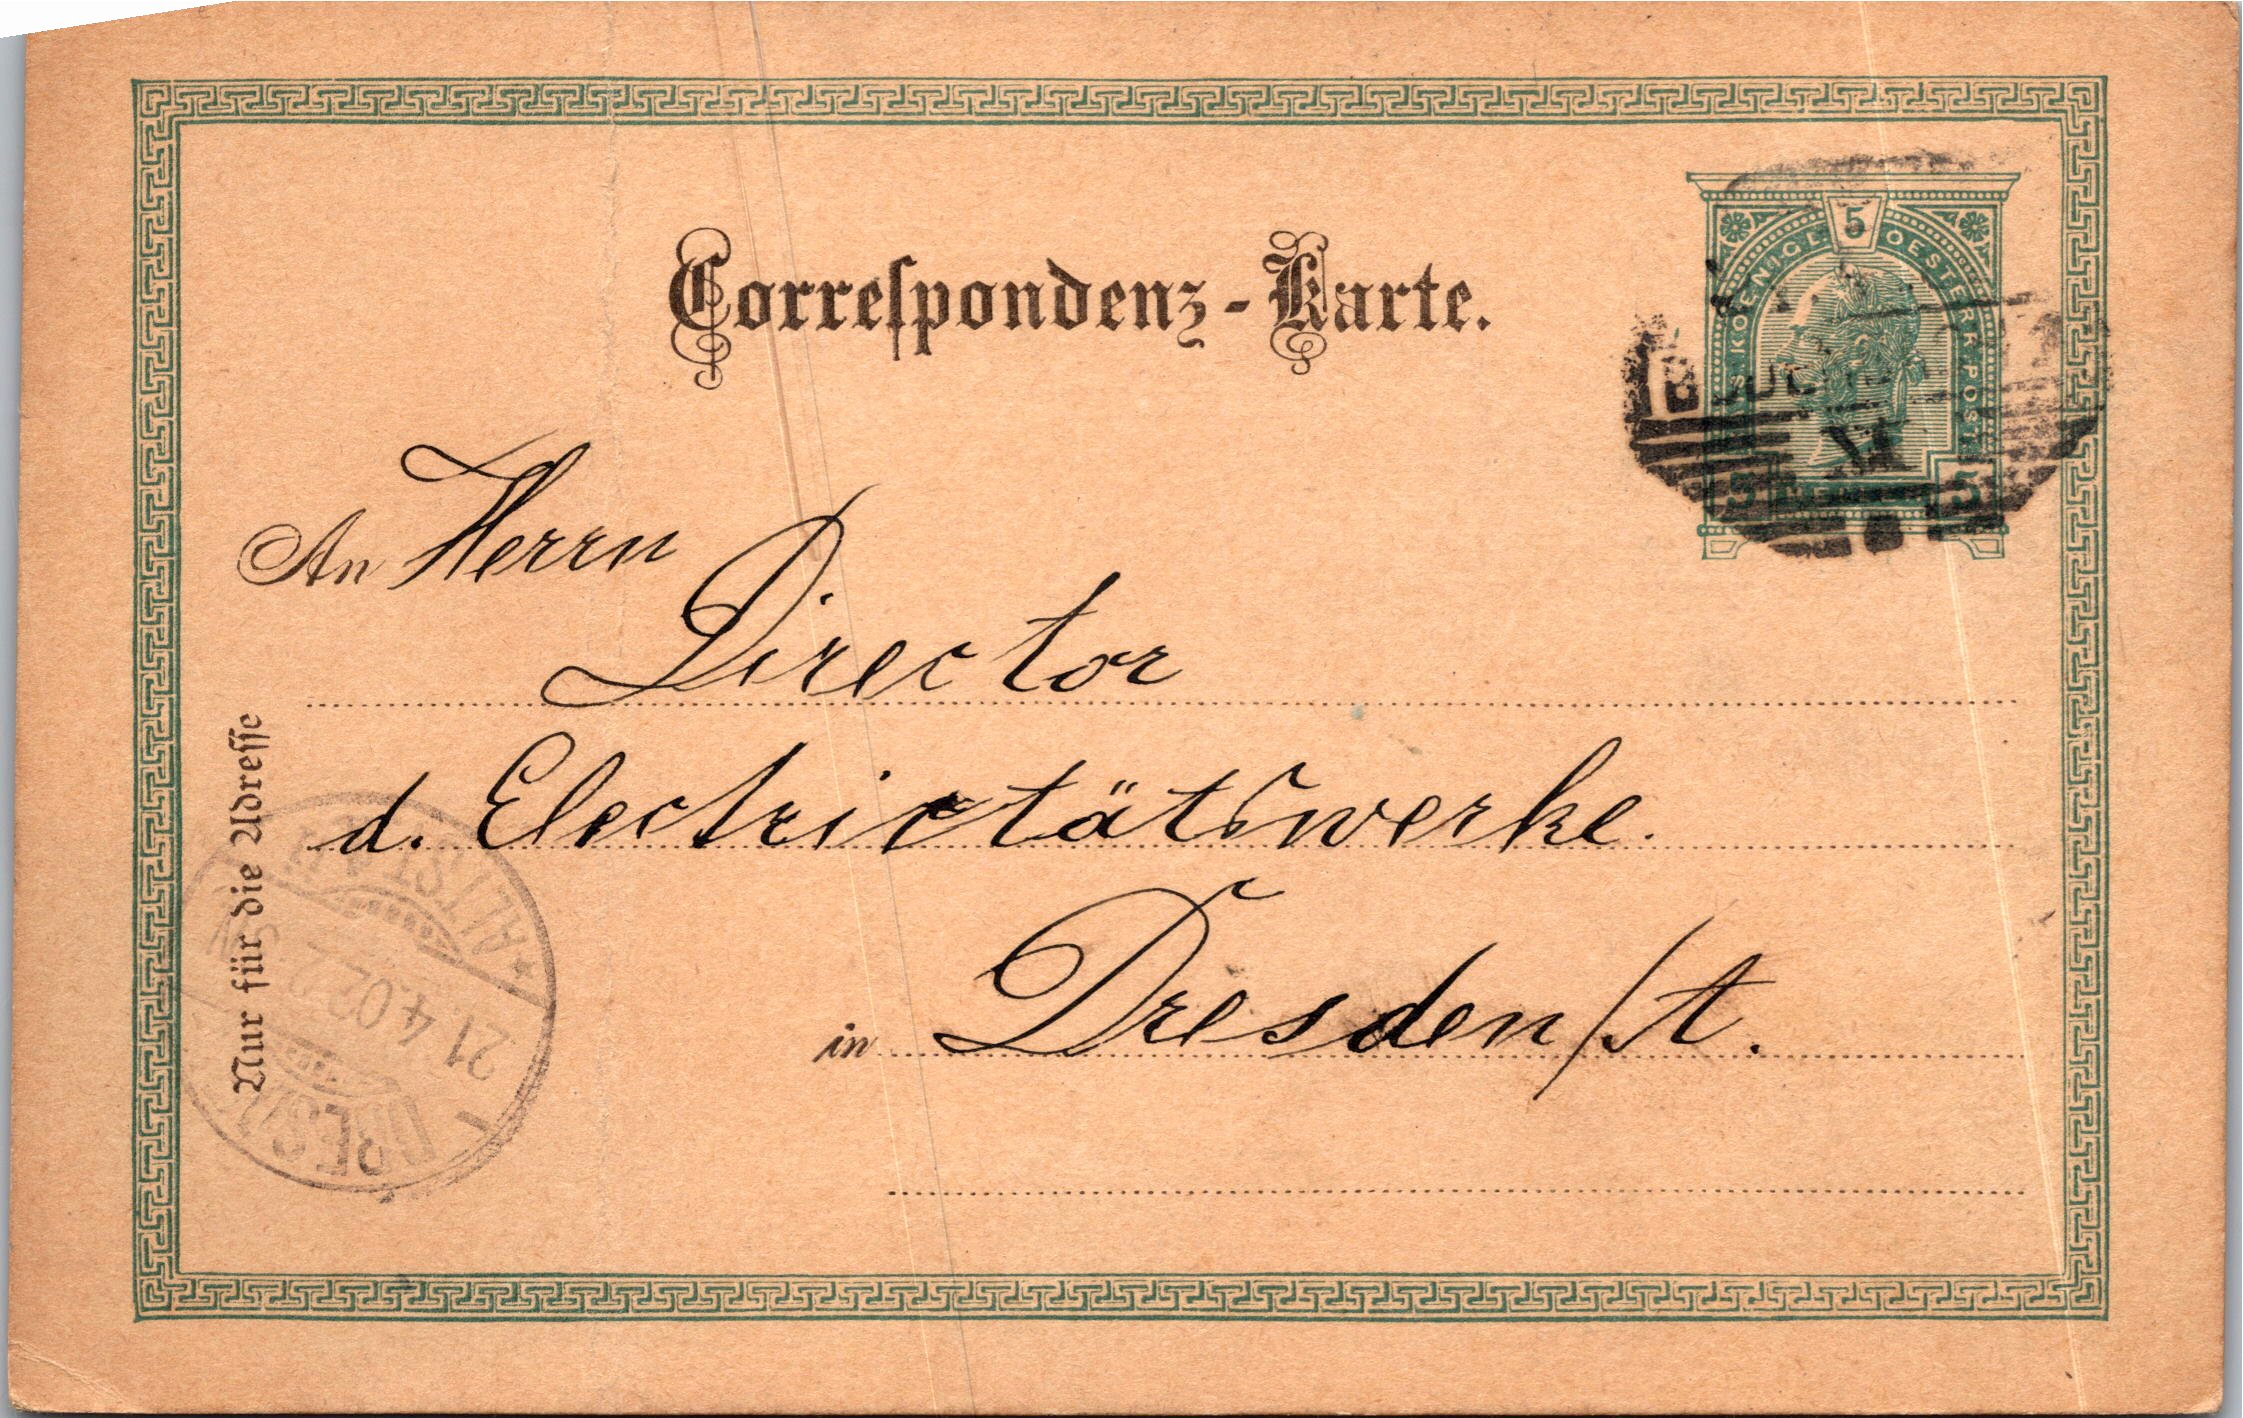 Correspondenz-Karte.
5
KOENIGL. OESTERR. POST
5 5
An Herrn
Director
d. Electrictätswerke.
in Dresden/A.
Nur für die Adresse
ALTSTADT
21.4.02.
DRESDEN